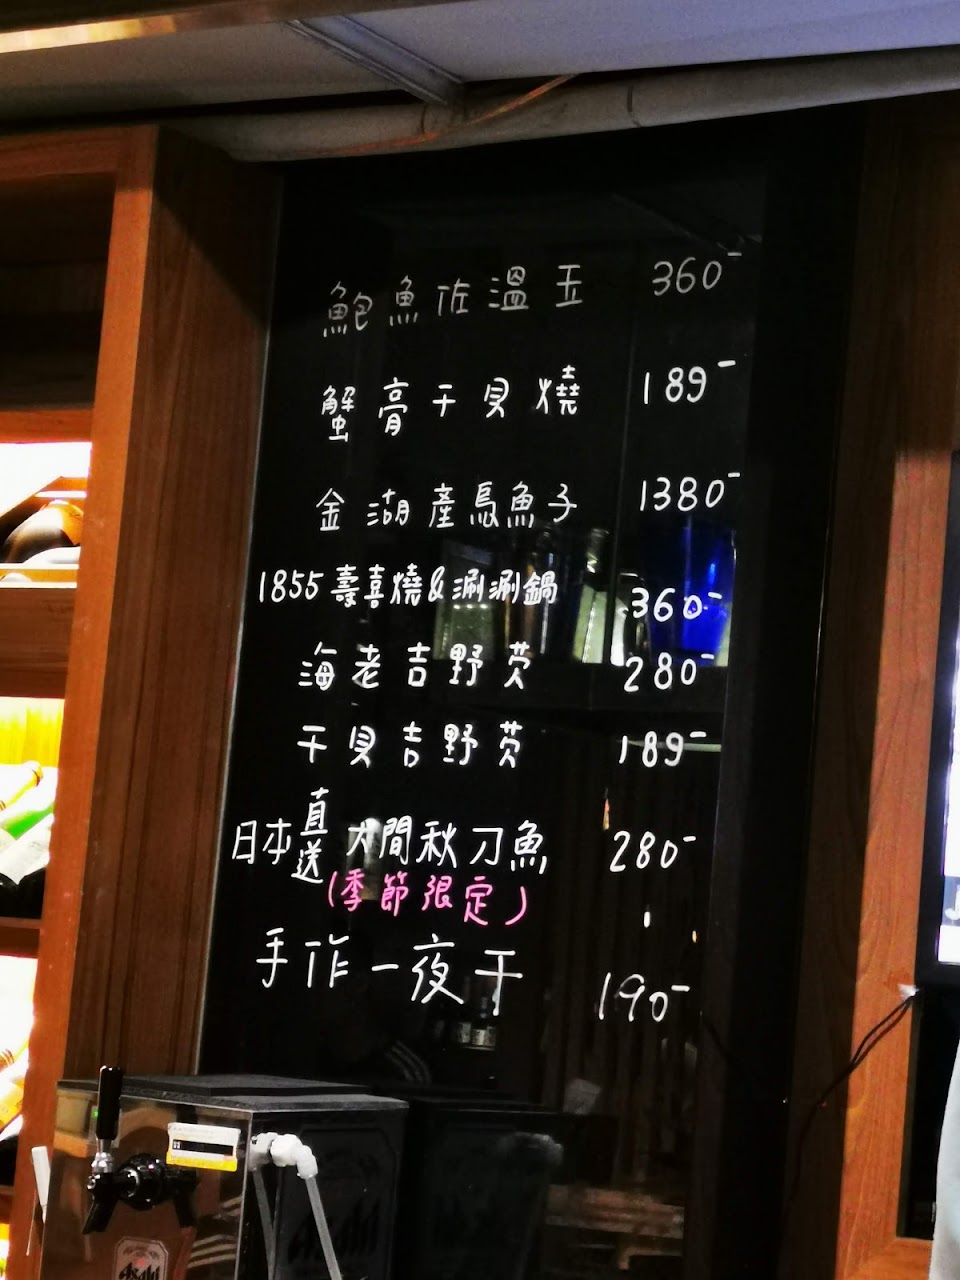 鮑魚佐溫玉 360-
蟹膏干貝燒 189-
金湖產烏魚子 1380-
1855壽喜燒&涮涮鍋 360-
海老吉野煑 280-
干貝吉野煑 189-
日本直送 大間秋刀魚 280-
(季節限定)
手作一夜干 190-
Asahi